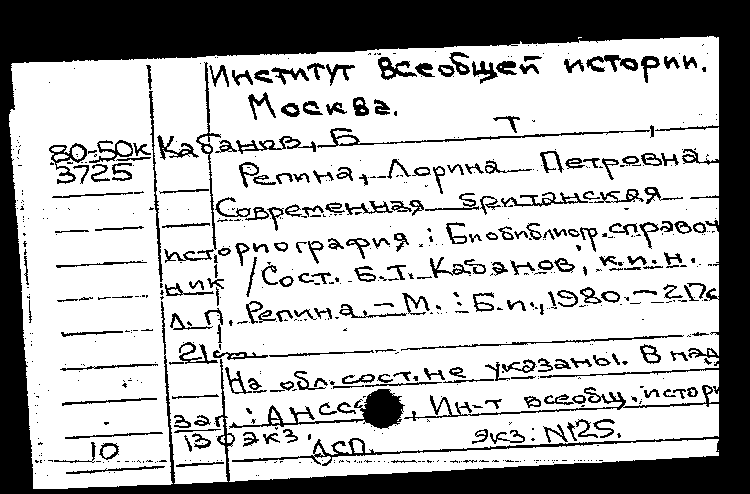 Институт всеобщей истории.
Москва.
80-50к Кабанов, Б Т
3725 Репина, Лорина Петровна
Современная британская
историография.: Биобиблиогр. справоч
ник / Сост. Б.Т. Кабанов, к.и.н.
Л.П. Репина. – М. : Б.и., 1980. – 2Пс
21см.
На обл. сост. не указаны. В над
заг.: АНСС , Ин-т всеобщ. истори
130экз.
10 ДСП. Экз: №125.